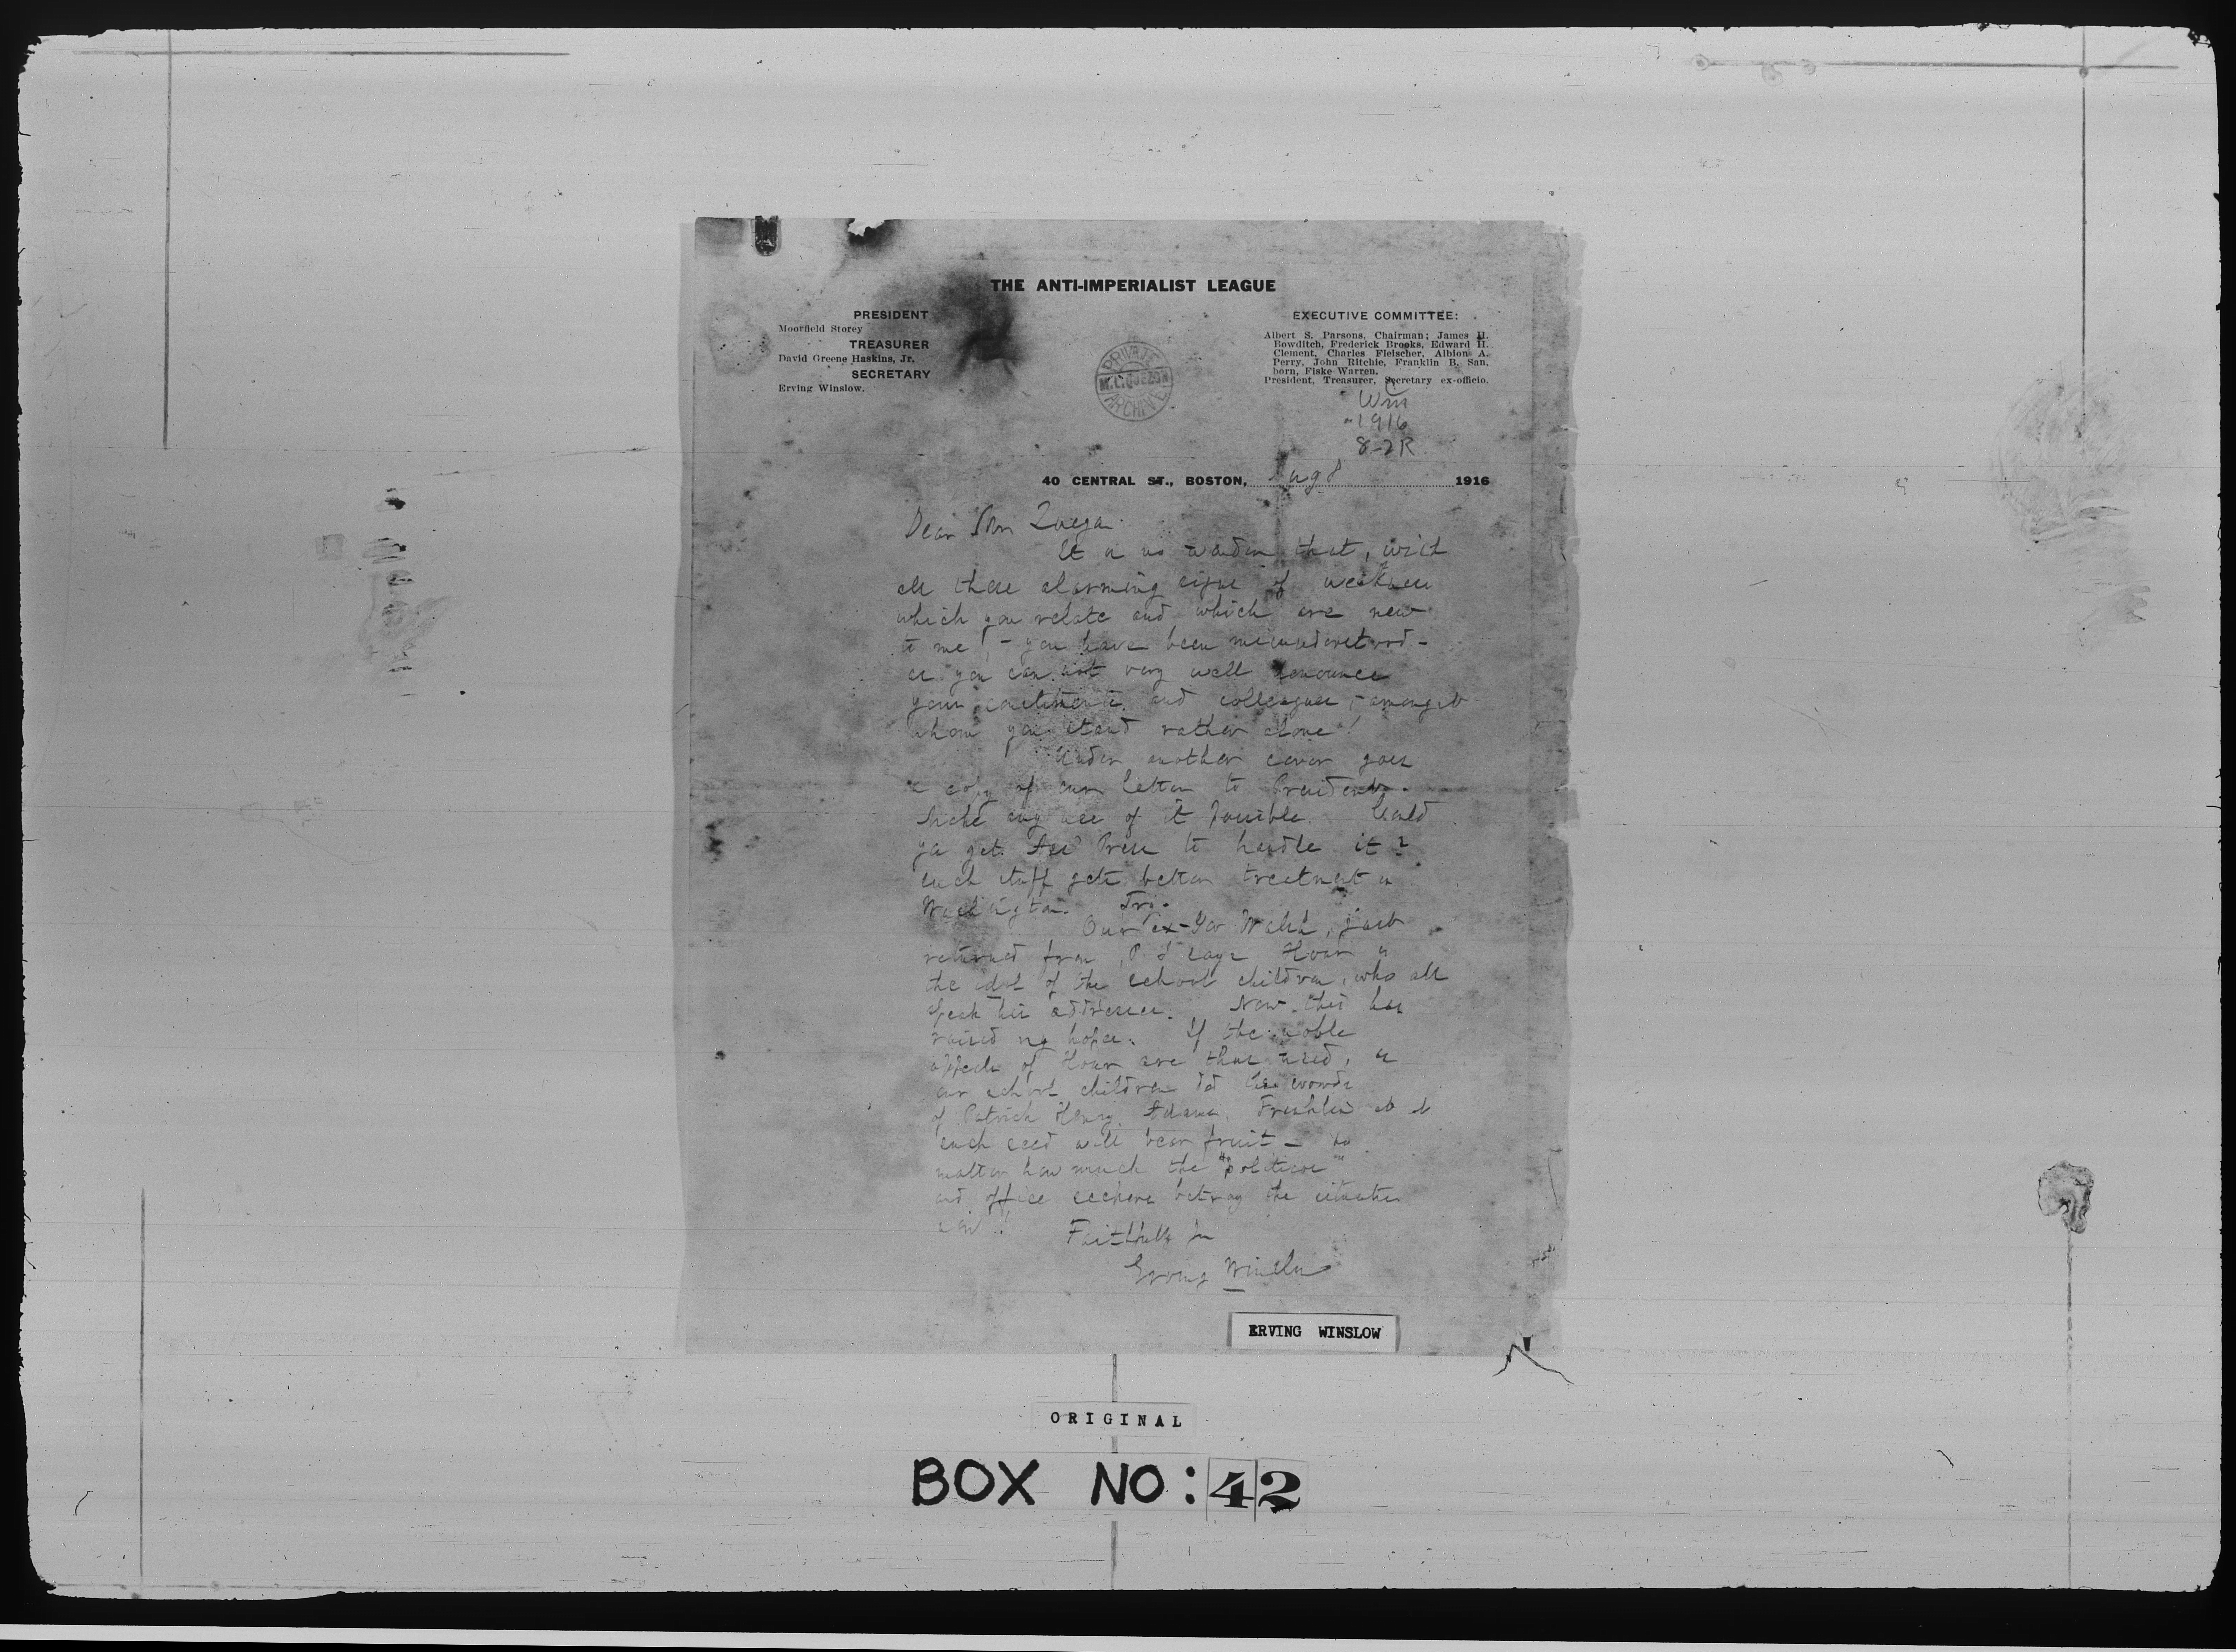 THE ANTI-IMPERIALIST LEAGUE
PRESIDENT
Moorfield Storey
TREASURER
David Greene Haskins, Jr.
SECRETARY
Erving Winslow.
EXECUTIVE COMMITTEE:
Albert S. Parsons, Chairman; James H.
Bowditch, Frederick Brooks, Edward H.
Clement, Charles Fleischer, Albion A.
Perry, John Ritchie, Franklin B. San-
born, Fiske Warren.
President, Treasurer, Secretary ex-officio.
PRIVATE
M.L.QUEZON
ARCHIVE
1916
8-2R
40 CENTRAL ST., BOSTON, Aug 8 1916
Dear
It is no wonder that, with
all these alarming signs of weakness
which you relate and which are new
to me! - you have been misunderstood -
as you can not very well denounce
your constituents and colleagues, - amongst
whom you stand rather alone!
Under another cover goes
a copy of our letter to President.
Make any use of it possible. Could
you get Press to handle it?
such stuff gets better treatment in
Washington.
Our ex-Gov Walsh, just
returned from says Hoar is
the idol of the school children, who all
speak his addresses. Now this has
raised my hopes. If the noble
appeals of Hoar are thus used, as
our school children did the words
of Patrick Henry, Adams, Franklin
such seed will bear fruit - no
matter how much the "politicos"
and office seekers betray the situation
now!
Faithfully
Erving Winslow
ERVING WINSLOW
ORIGINAL
BOX NO: 42